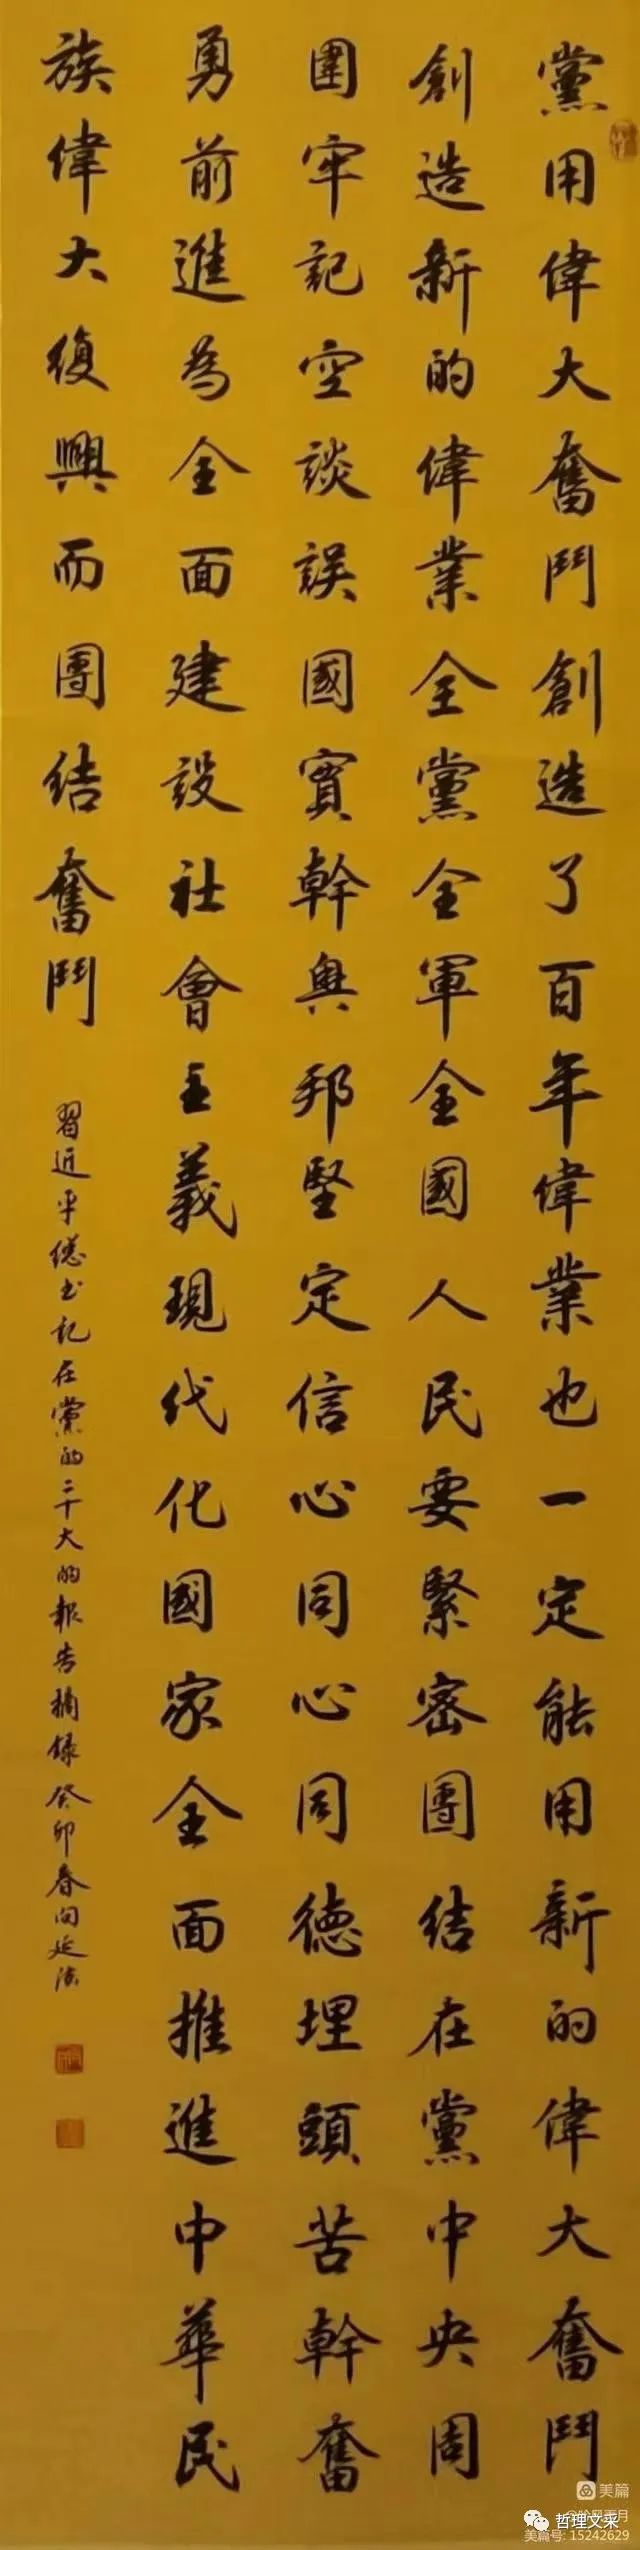 黨用偉大奮鬥創造了百年偉業也一定能用新的偉大奮鬥
創造新的偉業全黨全軍全國人民要緊密團結在黨中央周
圍牢記空談誤國實幹興邦堅定信心同心同德埋頭苦幹奮
勇前進為全面建設社會主義現代化國家全面推進中華民
族偉大復興而團結奮鬥
習近平總书記在黨的二十大的報告摘錄癸卯春向延法
美篇
哲理文采
美篇号: 15242629